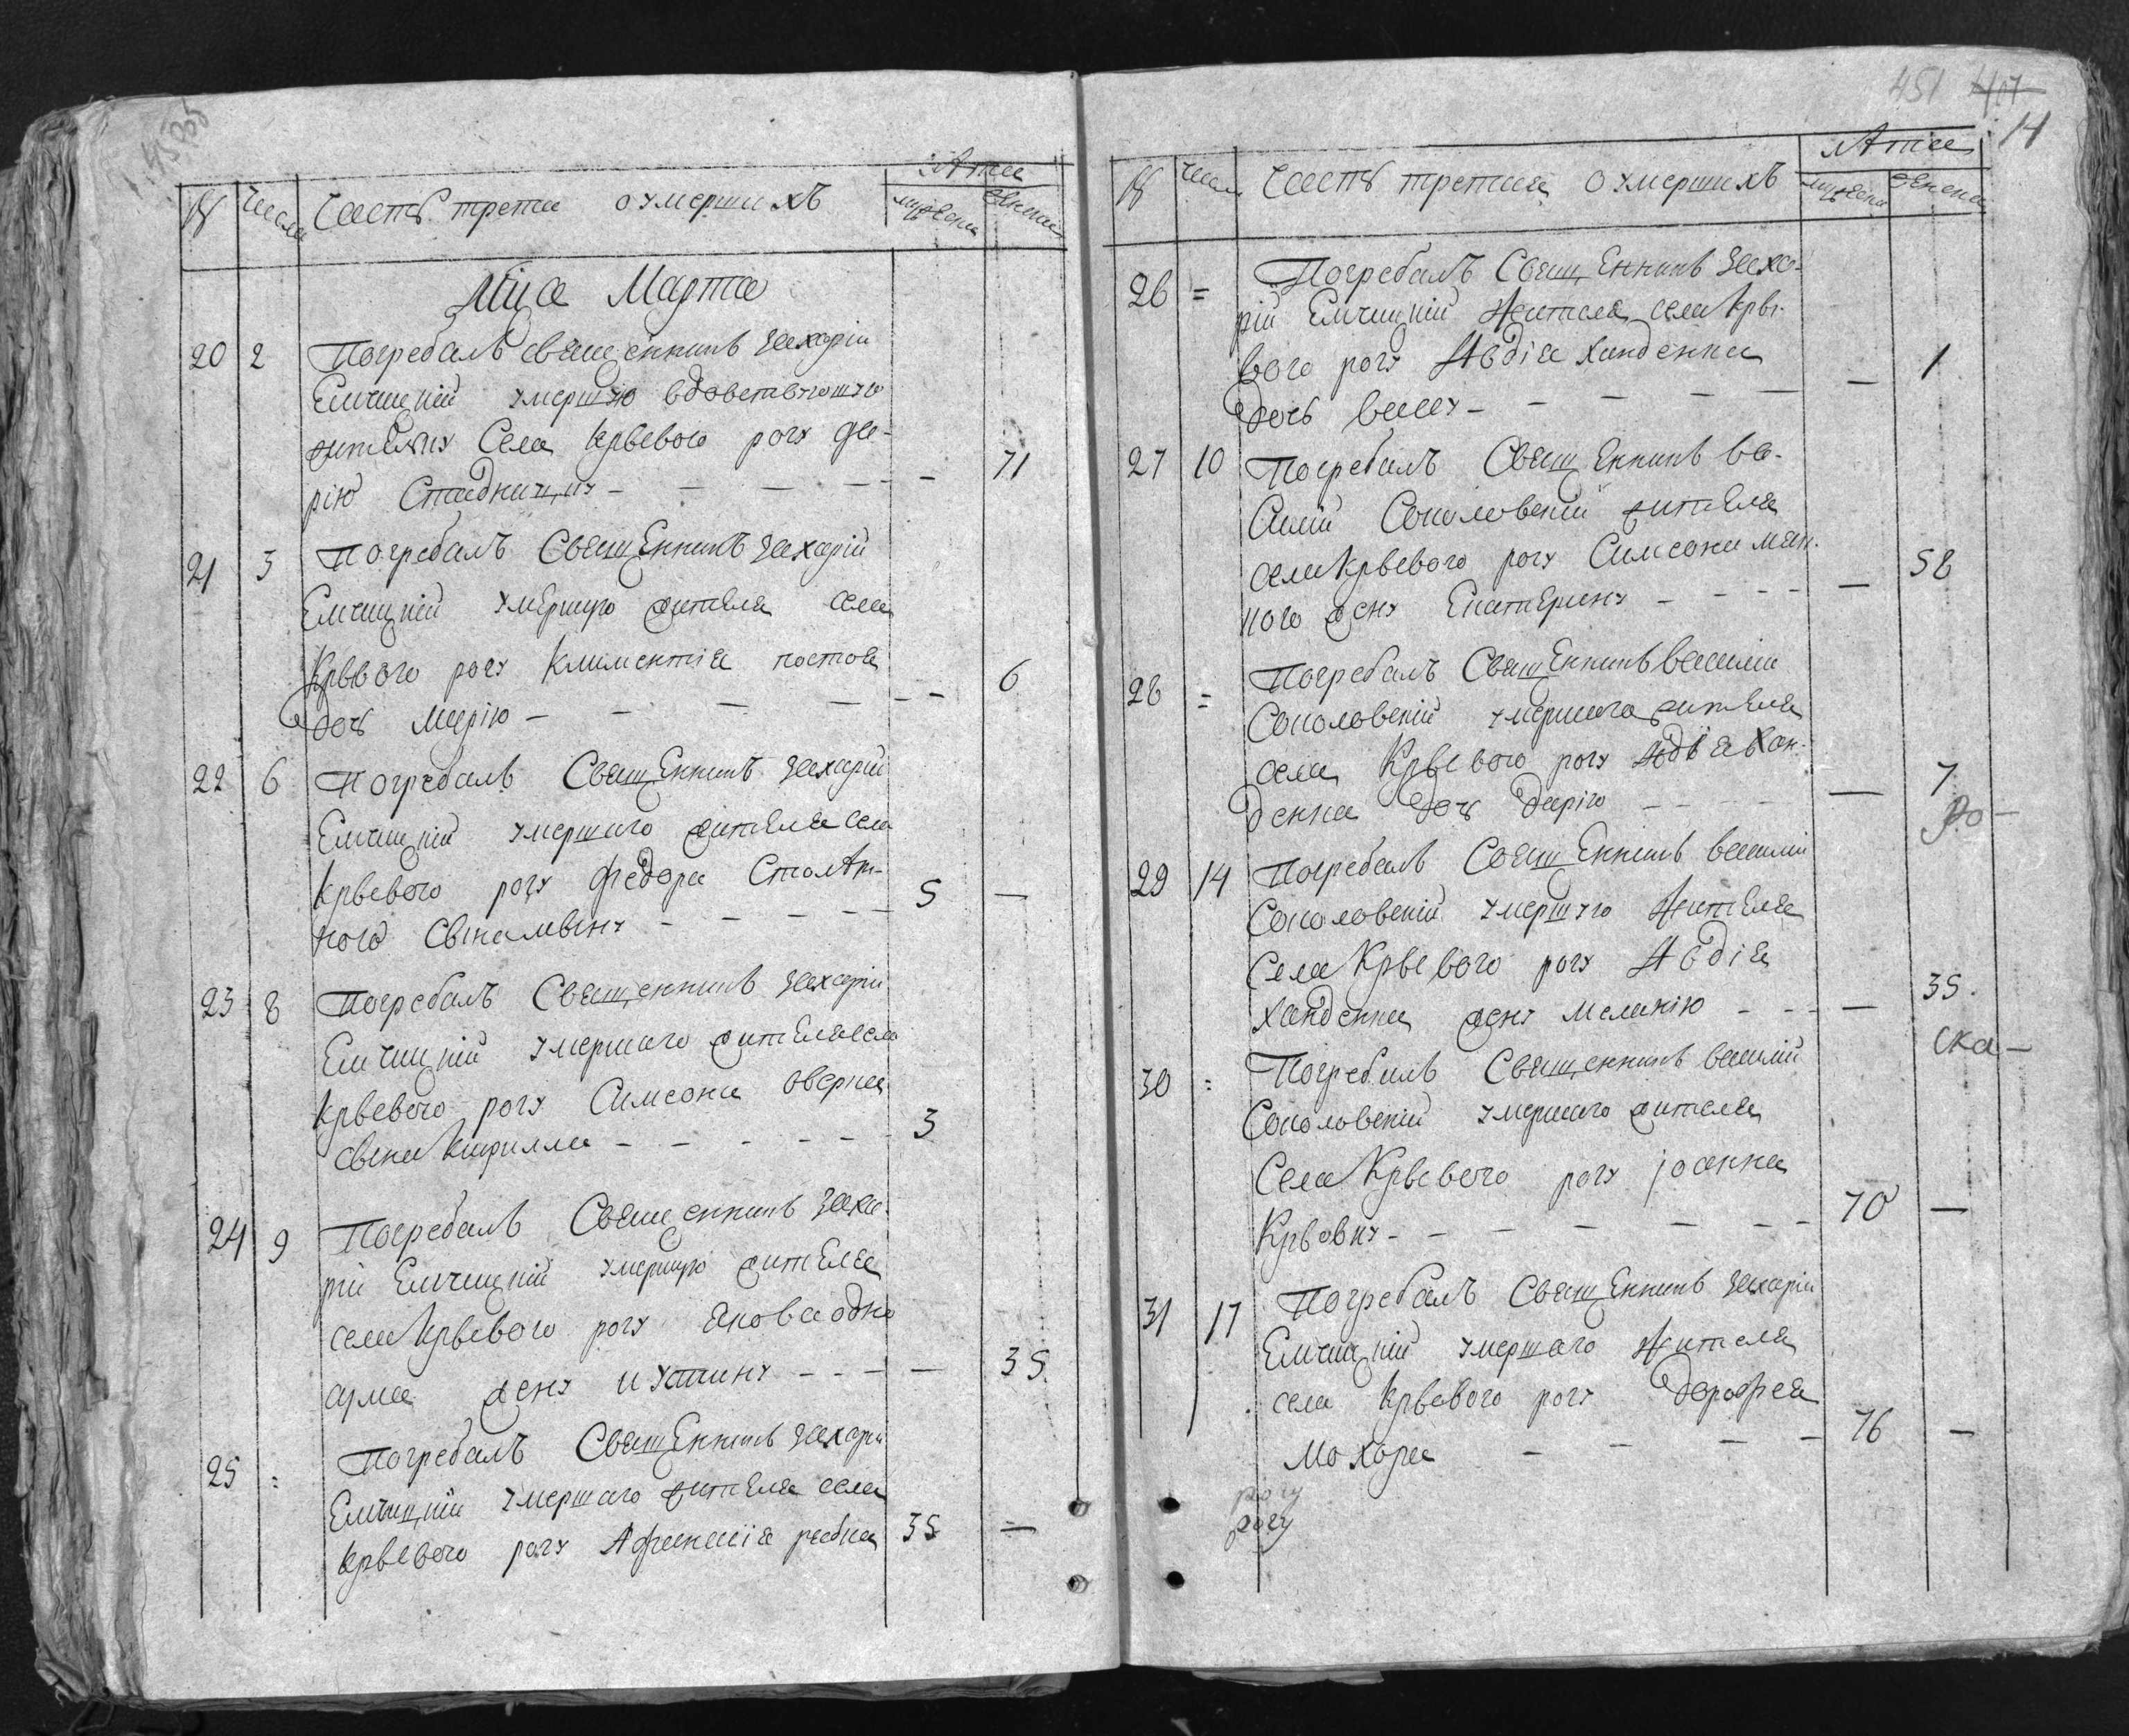 № Числа Часть третя о умершихъ лѣта
мужеска женска
Мца Марта
20 2 Погребалъ священникъ Захарій
Емчицкій умершую вдовствующую
жителку села Кривого рогу Да-
рію Стадничку - - - - - 71
21 3 Погребалъ Священникъ Захарій
Емчицкій умершую жителя села
Кривого рогу Климентія
дочь Марію - - - - - 6
22 6 Погребалъ Священникъ Захарій
Емчицкій умершаго жителя села
Кривого рогу Федора Столѣт-
ного сына - - - - 5 —
23 8 Погребалъ Священникъ Захарій
Емчицкій умершаго жителя села
Кривого рогу Симеона
сына Кирилла - - - - - 3
24 9 Погребалъ Священникъ Заха-
рій Емчицкій умершую жителя
села Кривого рогу Якова одно
жену Иустину - - - — 35.
25 = Погребалъ Священникъ Захарій
Емчицкій умершаго жителя села
Кривого рогу Афанасія 35 —
451 417
14
№ Числа Часть третия о умершихъ лѣта
мужеска женска
26 = Погребалъ Священникъ Заха-
рій Емчицкій жителя села Кри-
вого рогу Авдіа Ханденка
дочь Вассу - - - - — 1
27 10 Погребалъ Священникъ Ва-
силій Соколовскій жителя
села Кривого рогу Симеона
ного жену Екатерину - - - - — 58
28 = Погребалъ Священникъ Василій
Соколовскій умершаго жителя
села Кривого рогу Авдѣа Хан-
денка дочь Дарію - - - - — 7
Ро-
29 14 Погребалъ Священникъ Василій
Соколовскій умершую жителя
села Кривого рогу Авдіа
Ханденка жену Меланію - - - — 35.
ска-
30 = Погребалъ Священникъ Василій
Соколовскій умершаго жителя
Села Кривого рогу Іоанна
- - - - - - 70 —
31 17 Погребалъ Священникъ Захарій
Емчицкій умершаго жителя
села Кривого рогу Дорофея
Мохора - - - - 76 —
рогу
рогу